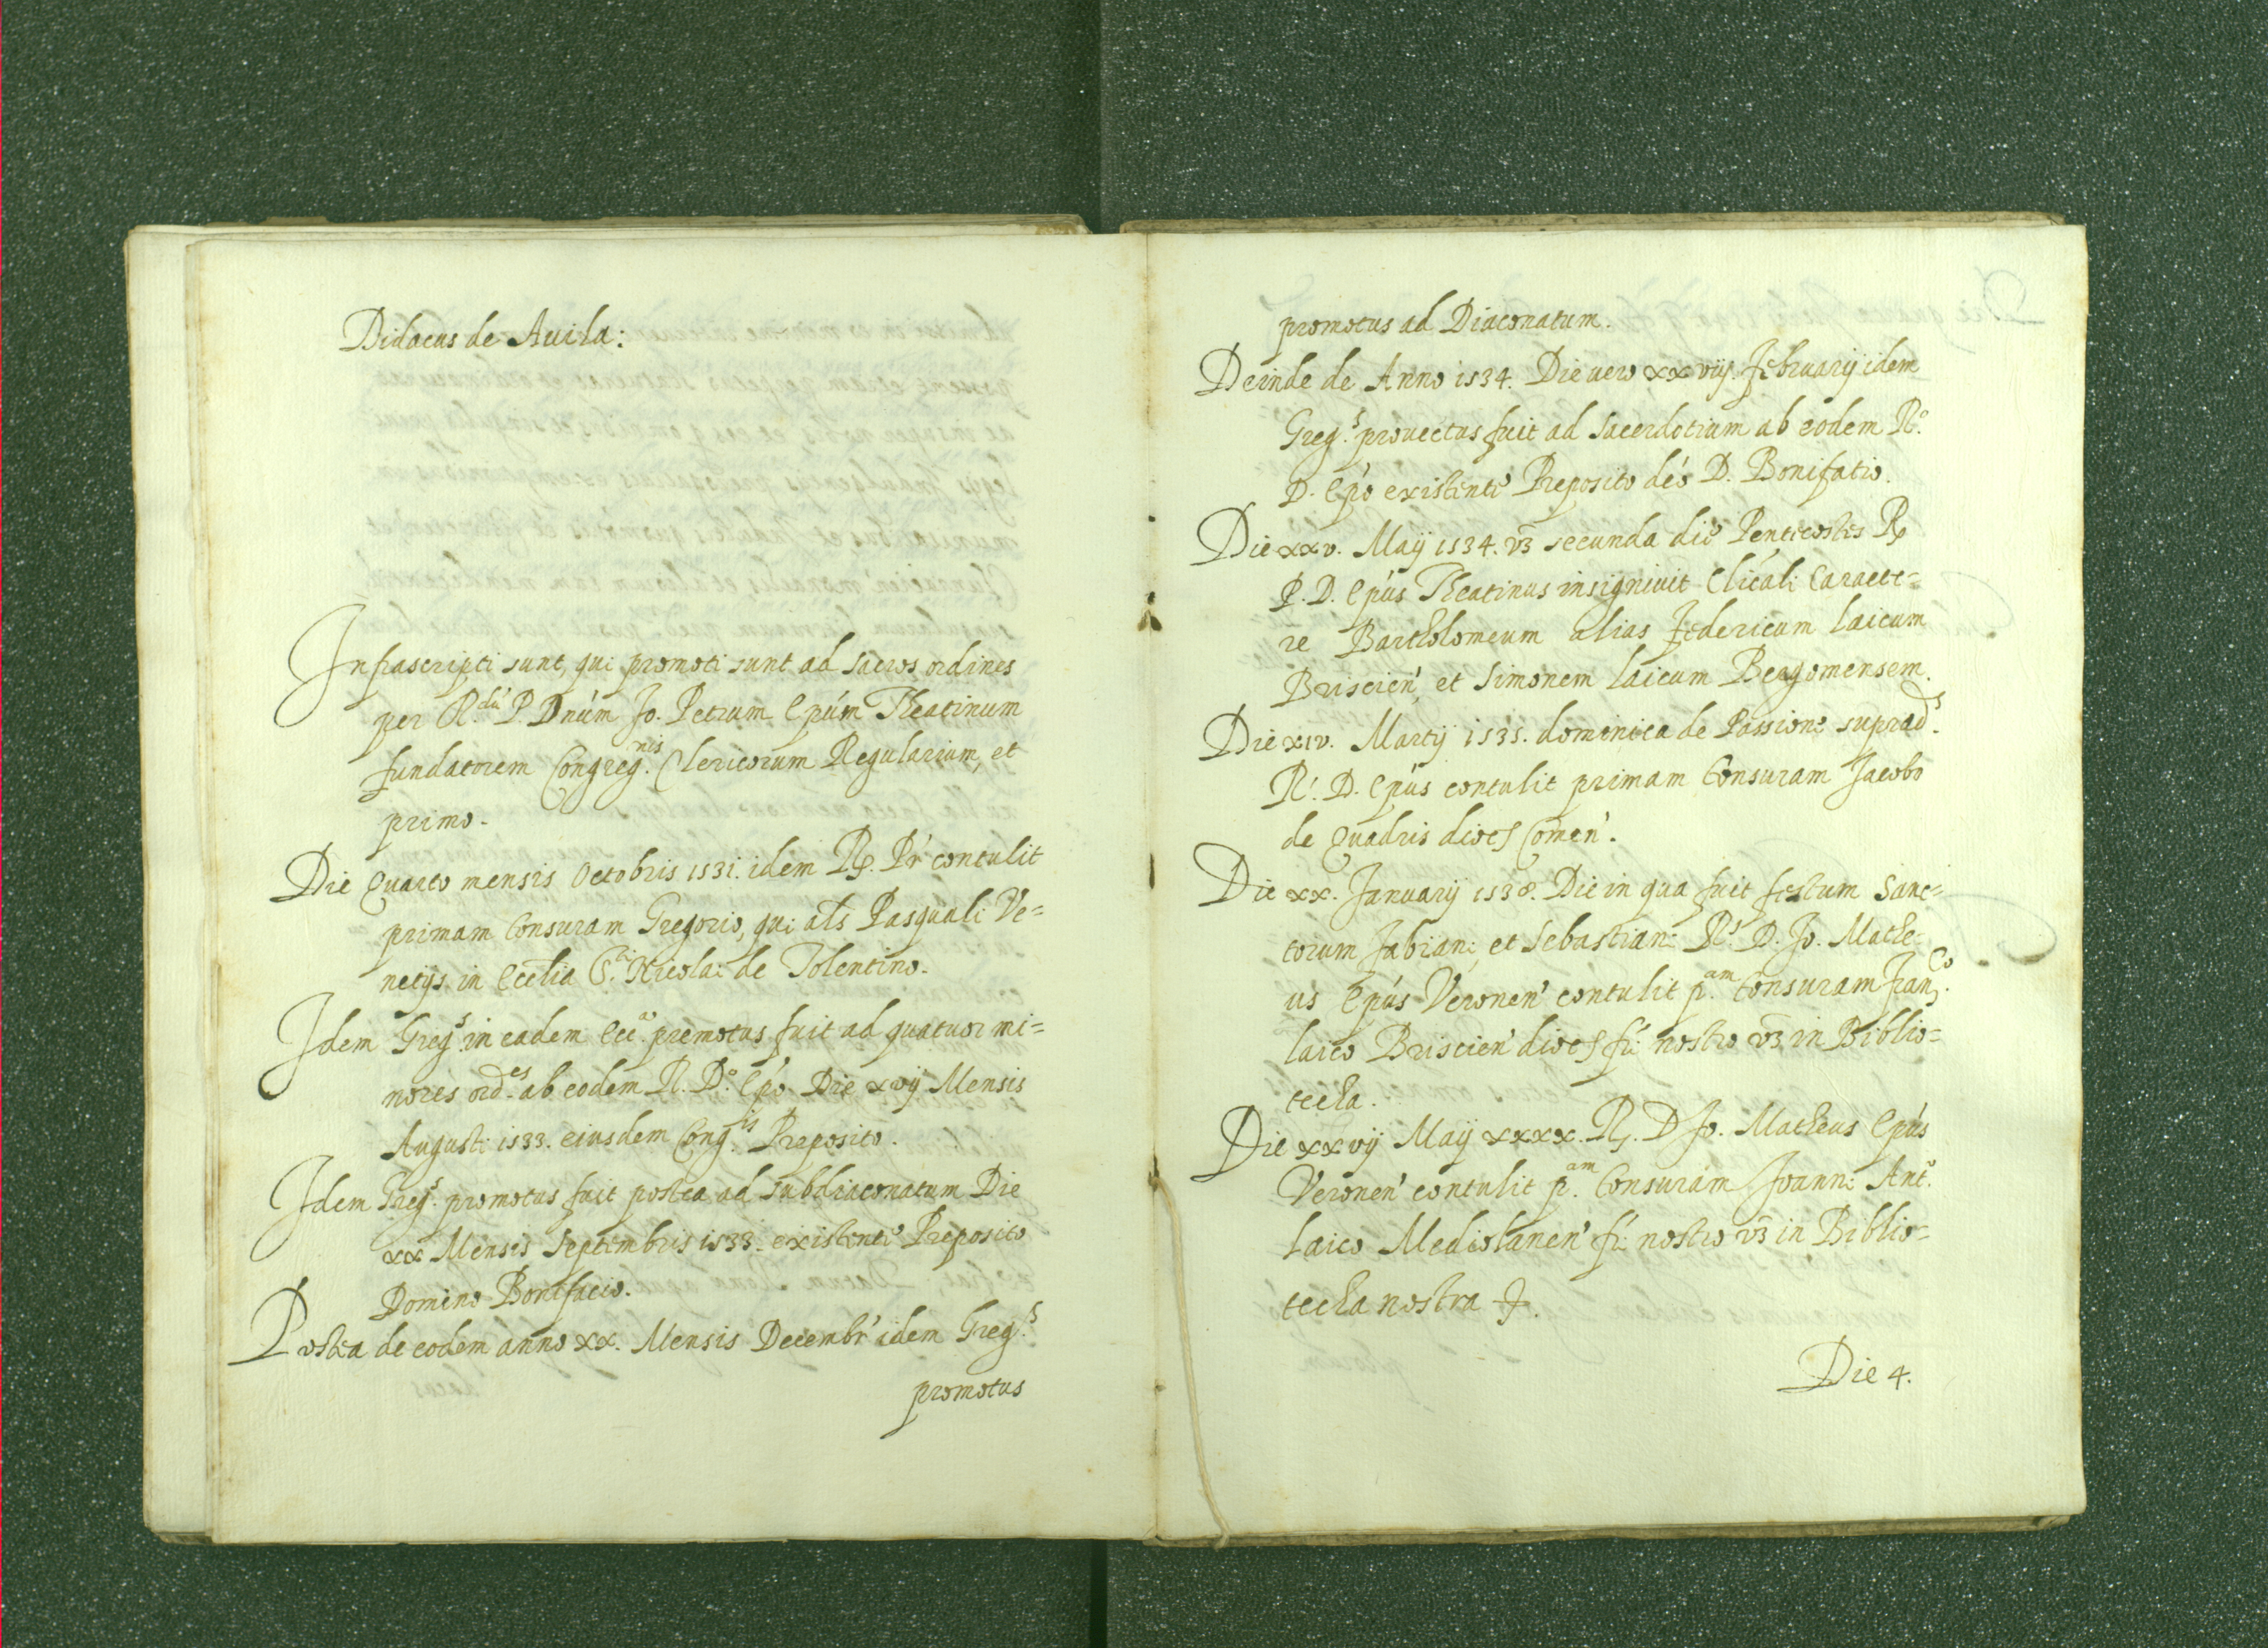 Didacus de Auila:
Infrascripti sunt, qui promoti sunt ad sacros ordines
per R.dũ P. Dnúm Jo. Petrum Epúm Theatinum
fundatorem Congreg.nis Clericorum Regularium, et
primo.
Die Quarto mensis Octobris 1531. idem Rp. Pr' contulit
primam tonsuram Gregorio, qui als Pasquali Ve=
netijs in Ecclia S.ti Nicolai de Tolentino.
Idem Greg.s in eadem Ecc.a premotus fuit ad quatuor mi=
nores ord.es ab eodem R. D.o Epó Die xvij Mensis
Augusti 1533. eiusdem Cong.is Preposito.
Idem Greg.s promotus fuit postea ad subdiaconatum Die
xx Mensis Septembris 1533. existente Preposito
Domino Bonifacio.
Postea de eodem anno xx. Mensis Decembr' idem Greg.s
promotus
promotus ad Diaconatum.
Deinde de Anno 1534. Die uero xxviij. Februarij idem
Greg.s prouectus fuit ad sacerdotium ab eodem R.o
D. Epó existente Preposito déo D. Bonifatio.
Die xxv. Maij 1534. vz secunda die Pentecostes Rp
P. D. Epús Theatinus insigniuit Clicali Caracte=
re Bartholomeum alias Federicum laicum
Briscien', et Simonem laicum Bergomensem.
Die xiv. Martij 1535. dominica de Passione suprad.s
R.s D. Epús contulit primam tonsuram Jacobo
de Quadris dioces Comen'.
Die xx. Januarij 1538. Die in qua fuit festum Sanc=
torum Fabiani et Sebastiani R.s D. Jo. Mathe=
us Epús Veronen' contulit p.am tonsuram Franc.co
laico Briscien' dioces fri nostro vz in Biblio=
techa.
Die xxvij Maij xxxx. R. D Jo. Matheus Epús
Veronen' contulit p.am tonsuram Joanni Ant.o
laico Mediolanen' fri nostro vz in Biblio=
techa nostra
Die 4.